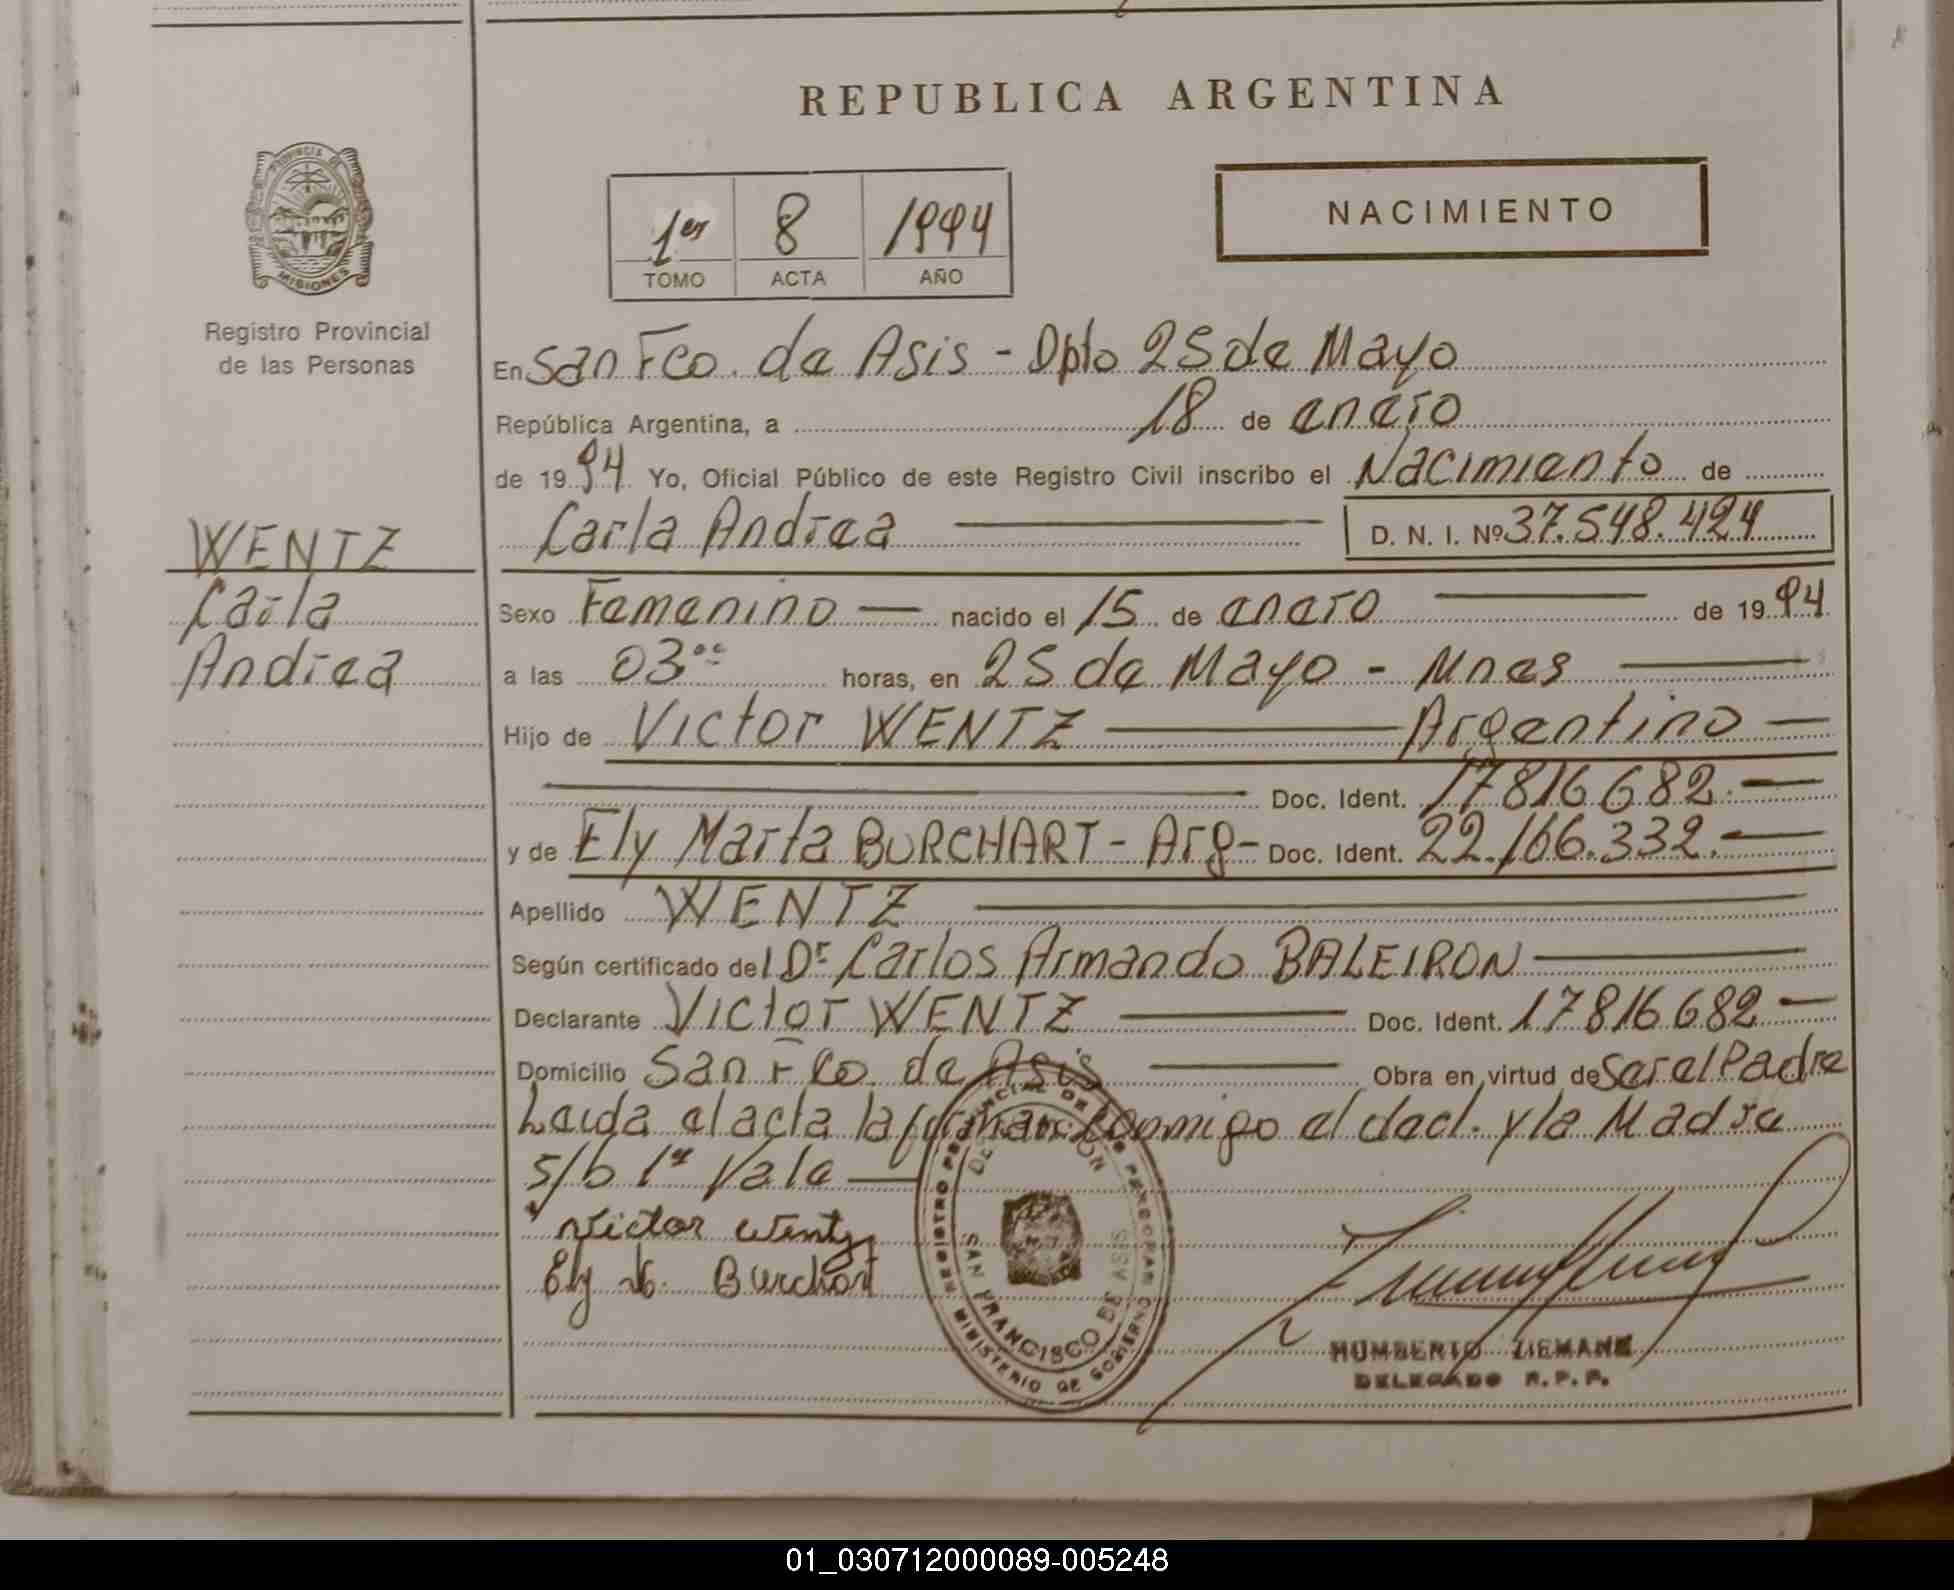 REPUBLICA ARGENTINA
PROVINCIA DE
MISIONES
Registro Provincial
de las Personas
1er 8 1994
TOMO ACTA AÑO
NACIMIENTO
En San Fco. de Asis - Dpto 25 de Mayo
República Argentina, a 18 de enero
de 1994 Yo, Oficial Público de este Registro Civil inscribo el Nacimiento de
Carla Andrea D. N. I. Nº 37.548.424
WENTZ
Carla
Andrea
Sexo Femenino nacido el 15 de enero de 1994
a las 03°° horas, en 25 de Mayo - Mnes
Hijo de Victor WENTZ Argentino
Doc. Ident. 17816682.
y de Ely Marta BURCHART - Arg - Doc. Ident. 22.166.332.
Apellido WENTZ
Según certificado del Dr Carlos Armando BALEIRON
Declarante Victor WENTZ Doc. Ident. 17816682
Domicilio San Fco. de Asis Obra en virtud de ser el Padre
Leida el acta la firman conmigo el decl. y la Madre
s/b 1ª Vale
Victor Wentz
Ely M. Burchart
REGISTRO PROVINCIAL DE LAS PERSONAS
MINISTERIO DE GOBIERNO
SAN FRANCISCO DE ASIS
HUMBERTO ZIEMANN
DELEGADO R.P.P.
01_030712000089-005248